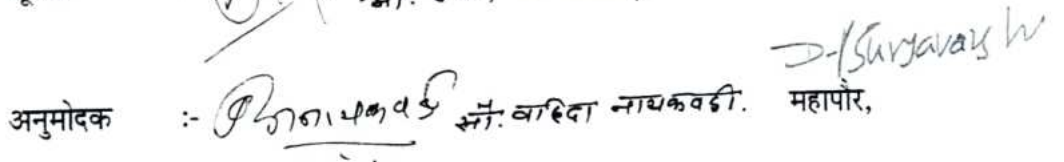 सौ.
D-/Suryavanshi
अनुमोदक :- सौ. वाहिदा नायकवडी. महापौर,